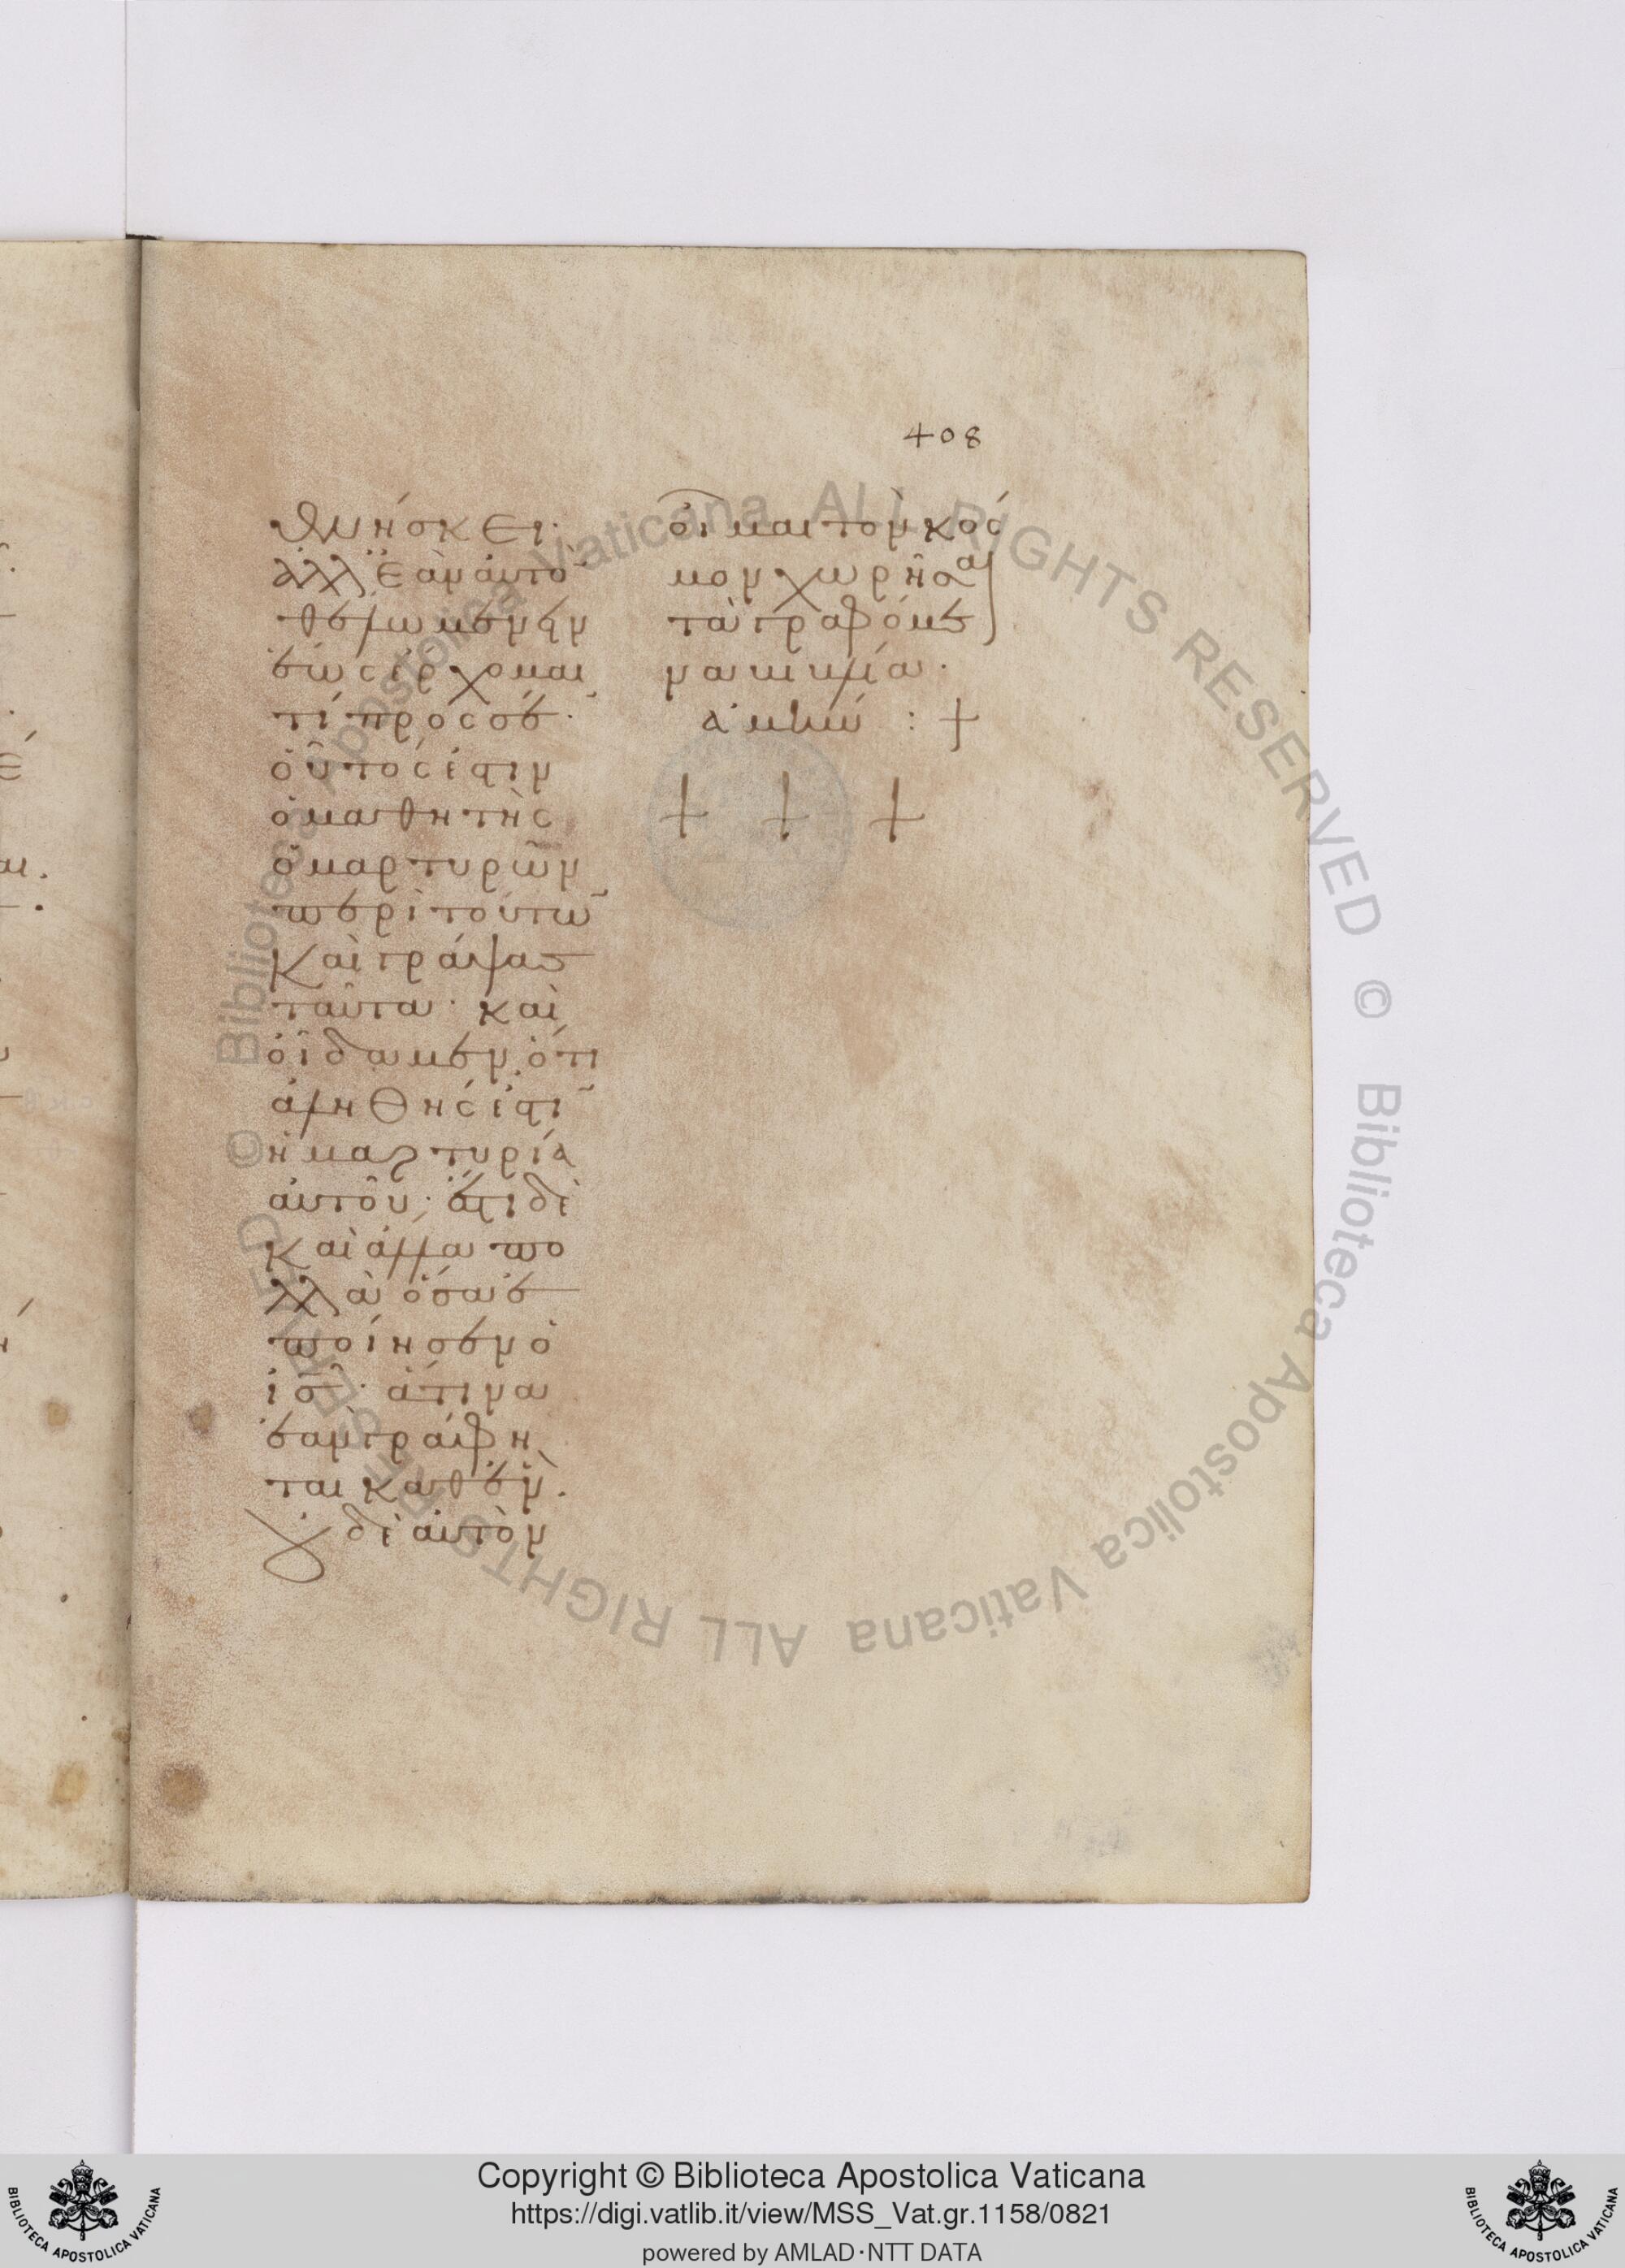 408
θνήσκει·
ἀλλ' ἐὰν αὐτὸ̅
θέλω μένειν
ἕως ἔρχομαι
τί πρὸς σέ·
οὗτός ἐστιν
ὁ μαθητὴς
ὁ μαρτυρῶν
περὶ τούτω̅
καὶ γράψας
ταῦτα· καὶ
οἴδαμεν ὅτι
ἀληθής ἐστι̅
ἡ μαρτυρία
αὐτοῦ· ἔστι δὲ
καὶ ἄλλα πο
λλὰ ὅσα ἐ
ποίησεν ὁ
ι̅σ̅· ἅτινα
ἐὰν γράφη
ται καθ' ἕν·
οὐδὲ αὐτὸν
οἶμαι τὸν κόσ
μον χωρῆσαι
τὰ γραφόμε
να βιβλία·
ἀμήν : +
+ + +
Copyright © Biblioteca Apostolica Vaticana
https://digi.vatlib.it/view/MSS_Vat.gr.1158/0821
powered by AMLAD·NTT DATA
BIBLIOTECA APOSTOLICA VATICANA
BIBLIOTECA APOSTOLICA VATICANA
© Biblioteca Apostolica Vaticana ALL RIGHTS RESERVED © Biblioteca Apostolica Vaticana ALL RIGHTS RESERVED